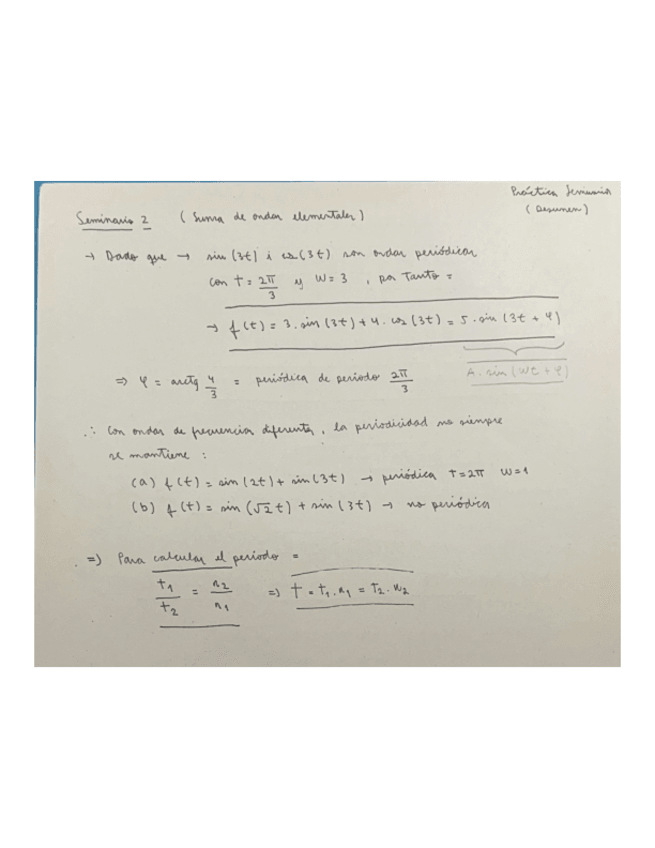 Práctica Seminario
(Resumen)
Seminario 2 (Suma de ondas elementales)
→ Dado que → sin(3t) i cos(3t) son ondas periódicas
con T = 2π/3 y W = 3, por tanto =
→ f(t) = 3·sin(3t) + 4·cos(3t) = 5·sin(3t + φ)
A·sin(Wt + φ)
=> φ = arctg 4/3 = periódica de periodo 2π/3
∴ Con ondas de frecuencias diferentes, la periodicidad no siempre
se mantiene :
(a) f(t) = sin(2t) + sin(3t) → periódica T = 2π W = 1
(b) f(t) = sin(√2t) + sin(3t) → no periódica
=> Para calcular el periodo =
T₁/T₂ = n₂/n₁ => T = T₁·n₁ = T₂·n₂